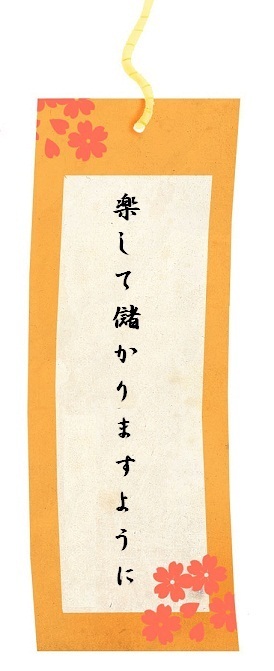 楽して儲かりますように